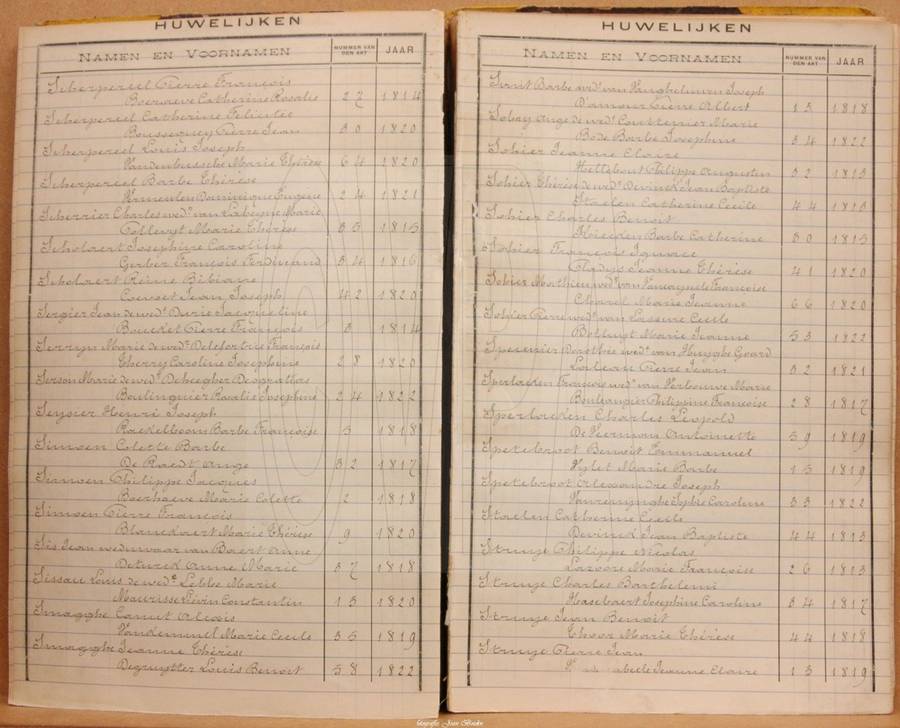 HUWELIJKEN
NAMEN EN VOORNAMEN NUMMER VAN DEN AKT JAAR
Scherpereel Pierre François
Boereve Catherine Rosalie 27 1814
Scherpereel Catherine Felicitee
Bousseguey Pierre Jean 30 1820
Scherpereel Louis Joseph
Vandenbussche Marie Thérèse 64 1820
Scherpereel Barbe Thérèse
Vermeulen Dominique Eugène 24 1821
Scherrier Charles wedr van Labeyne Marie
Marie Thérèse 35 1815
Scholaert Josephine Caroline
Gerber François Ferdinand 34 1816
Scholaert Reine Bibiane
Jean Joseph 42 1820
Sergier Jean de wedr Durie Jacqueline
Boucket Pierre François 3 1814
Serryn Marie de wedr Delefortrie François
Cherry Caroline Josephine 28 1820
Serson Marie de wedr Deheegher Desgrathas
Boulinguier Rosalie Josephine 24 1822
Seyser Henri Joseph
Raekelboom Barbe Françoise 5 1818
Simoen Colette Barbe
De Raedt Ange 32 1817
Simoen Philippe Jacques
Boerhaeve Marie Colette 2 1818
Simoen Pierre François
Blanckaert Marie Thérèse 9 1820
Sis Jean weduwaar van Baert Anne
Deturck Anne Marie 37 1818
Sissau Louis de wede Lebbe Marie
Maurisse Liévin Constantin 13 1820
Smagghe Canut Alexis
Vandemeul Marie Cecile 35 1819
Smagghe Jeanne Thérèse
Degruytter Louis Benoit 58 1822
HUWELIJKEN
NAMEN EN VOORNAMEN NUMMER VAN DEN AKT JAAR
Snut Barbe wedr van Vangheluwen Joseph
D'amour Pierre Albert 15 1818
Ange de wedr Couttenier Marie
Bode Barbe Josephine 34 1822
Sohier Jeanne Claire
Hellebout Philippe Augustin 32 1813
Sohier Thérèse de wedr Devinck Jean Baptiste
Staelen Catherine Cécile 44 1813
Sohier Charles Benoit
Barbe Catherine 30 1815
Sohier François Ignace
Gladys Jeanne Thérèse 41 1820
Sohier Mathieu wedr van Françoise
Charel Marie Jeanne 66 1820
Sohier Pierre wedr van Lassure Cecile
Marie Jeanne 53 1822
Dorothée wedr van Huyghe Gerard
Luteau Pierre Jean 32 1821
Sperlaeken François wedr van Verbouwe Marie
Boulangier Philippine Françoise 28 1817
Sperlaeken Charles Leopold
De Veerman Antoinette 59 1819
Spetebroot Benoit Emmanuel
Marie Barbe 15 1819
Spetebroot Alexandre Joseph
Sophie Caroline 33 1822
Staelen Catherine Cecile
Devinck Jean Baptiste 44 1813
Struye Philippe Nicolas
Marie Françoise 26 1813
Struye Charles Barthelemi
Hasebaert Josephine Caroline 34 1817
Struye Jean Benoit
Marie Thérèse 44 1818
Struye Pierre Jean
Jeanne Claire 13 1819
fotografie Joan Boudry